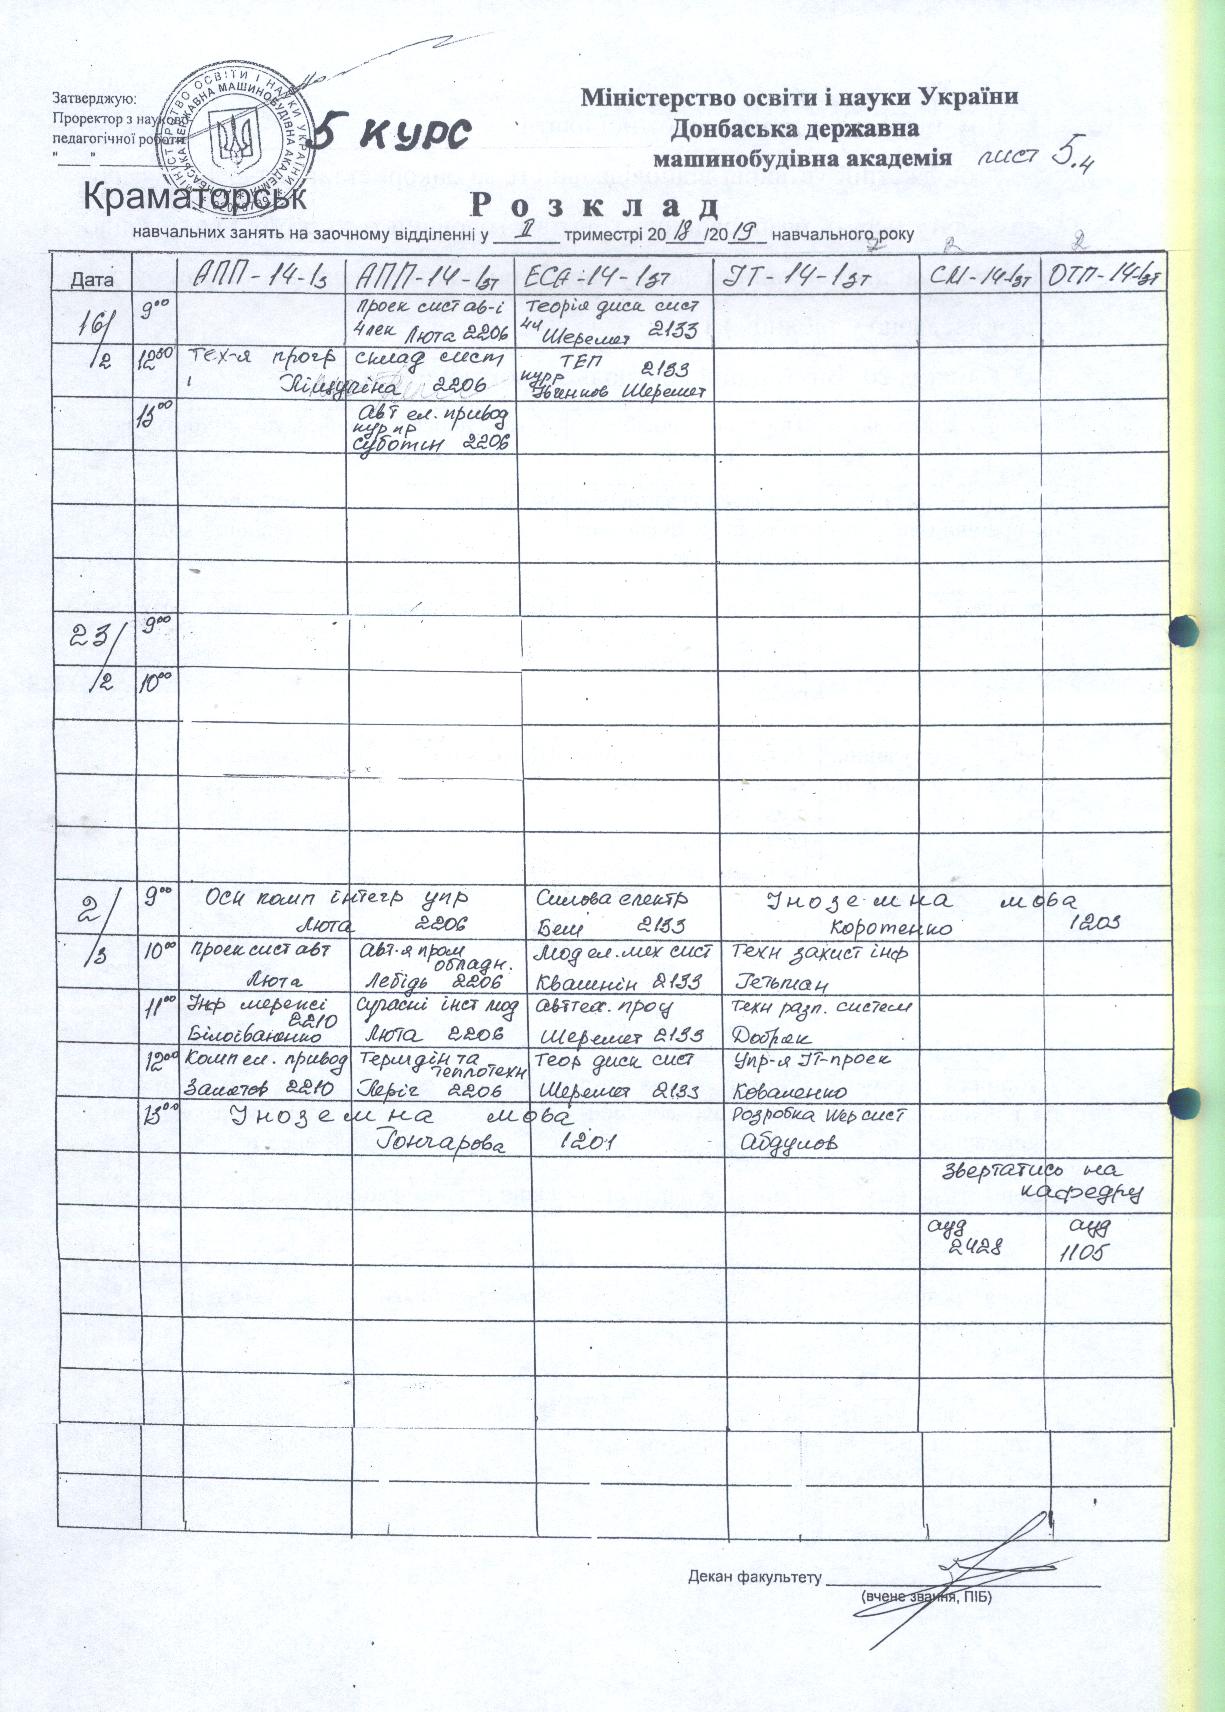 Затверджую:
Проректор з науково
педагогічної роботи
"____" ________
5 КУРС
Міністерство освіти і науки України
Донбаська державна
машинобудівна академія лист 5.4
Краматорськ
Р о з к л а д
навчальних занять на заочному відділенні у II триместрі 2018/2019 навчального року
Дата АПП-14-1з АПП-14-1зт ЕСА-14-1зт ІТ-14-1зт СМ-14-1зт ОТП-14-1зт
16/2
9⁰⁰
Проек сист ав-ї
4лек Люта 2206
Теорія диск сист
4ч Шеремет 2133
12⁰⁰
Тех-я прогр
склад сист
2206
ТЕП 2133
курр
Шеремет
13⁰⁰
Авт ел. привод
кур пр
Суботін 2206
23/2
9⁰⁰
10⁰⁰
2/3
9⁰⁰
Осн комп інтегр упр
Люта 2206
Силова електр
Беш 2133
Іноземна мова
Коротенко 1203
10⁰⁰
Проек сист авт
Люта
Авт-я пром
обладн.
Лебідь 2206
Мод ел.мех сист
Квашнін 2133
Техн захист інф
Гетьман
11⁰⁰
Інф мережі
2210
Білоіваненко
Сучасні інст мод
Люта 2206
Авт тех. проц
Шеремет 2133
Техн разп. систем
12⁰⁰
Комп ел. привод
2210
Термдін та
теплотехн
2206
Теор диск сист
Шеремет 2133
Упр-я ІТ-проек
Коваленко
13⁰⁰
Іноземна мова
Гончарова 1201
Розробка Wер сист
Абдулов
Звертатись на
кафедру
ауд
2428
ауд
1105
Декан факультету
(вчене звання, ПІБ)